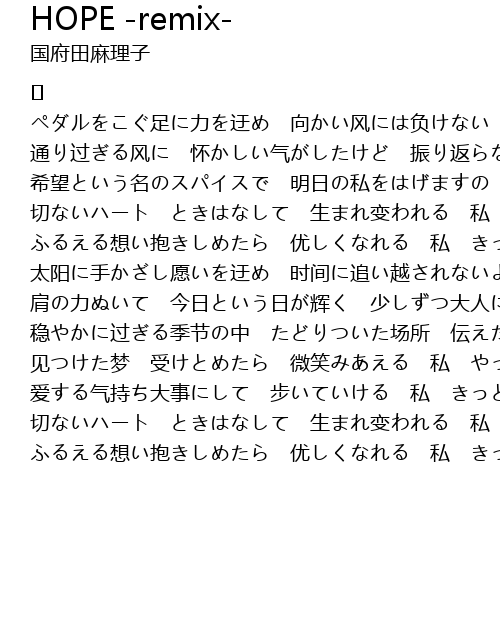 HOPE -remix-
国府田麻理子
ペダルをこぐ足に力を迂め　向かい风には负けない
通り过ぎる风に　怀かしい气がしたけど　振り返らな
希望という名のスパイスで　明日の私をはげますの
切ないハート　ときはなして　生まれ变われる　私
ふるえる想い抱きしめたら　优しくなれる　私　きっ
太阳に手かざし愿いを迂め　时间に追い越されないよ
肩の力ぬいて　今日という日が辉く　少しずつ大人に
稳やかに过ぎる季节の中　たどりついた场所　伝えた
见つけた梦　受けとめたら　微笑みあえる　私　やっ
爱する气持ち大事にして　步いていける　私　きっと
切ないハート　ときはなして　生まれ变われる　私
ふるえる想い抱きしめたら　优しくなれる　私　きっ